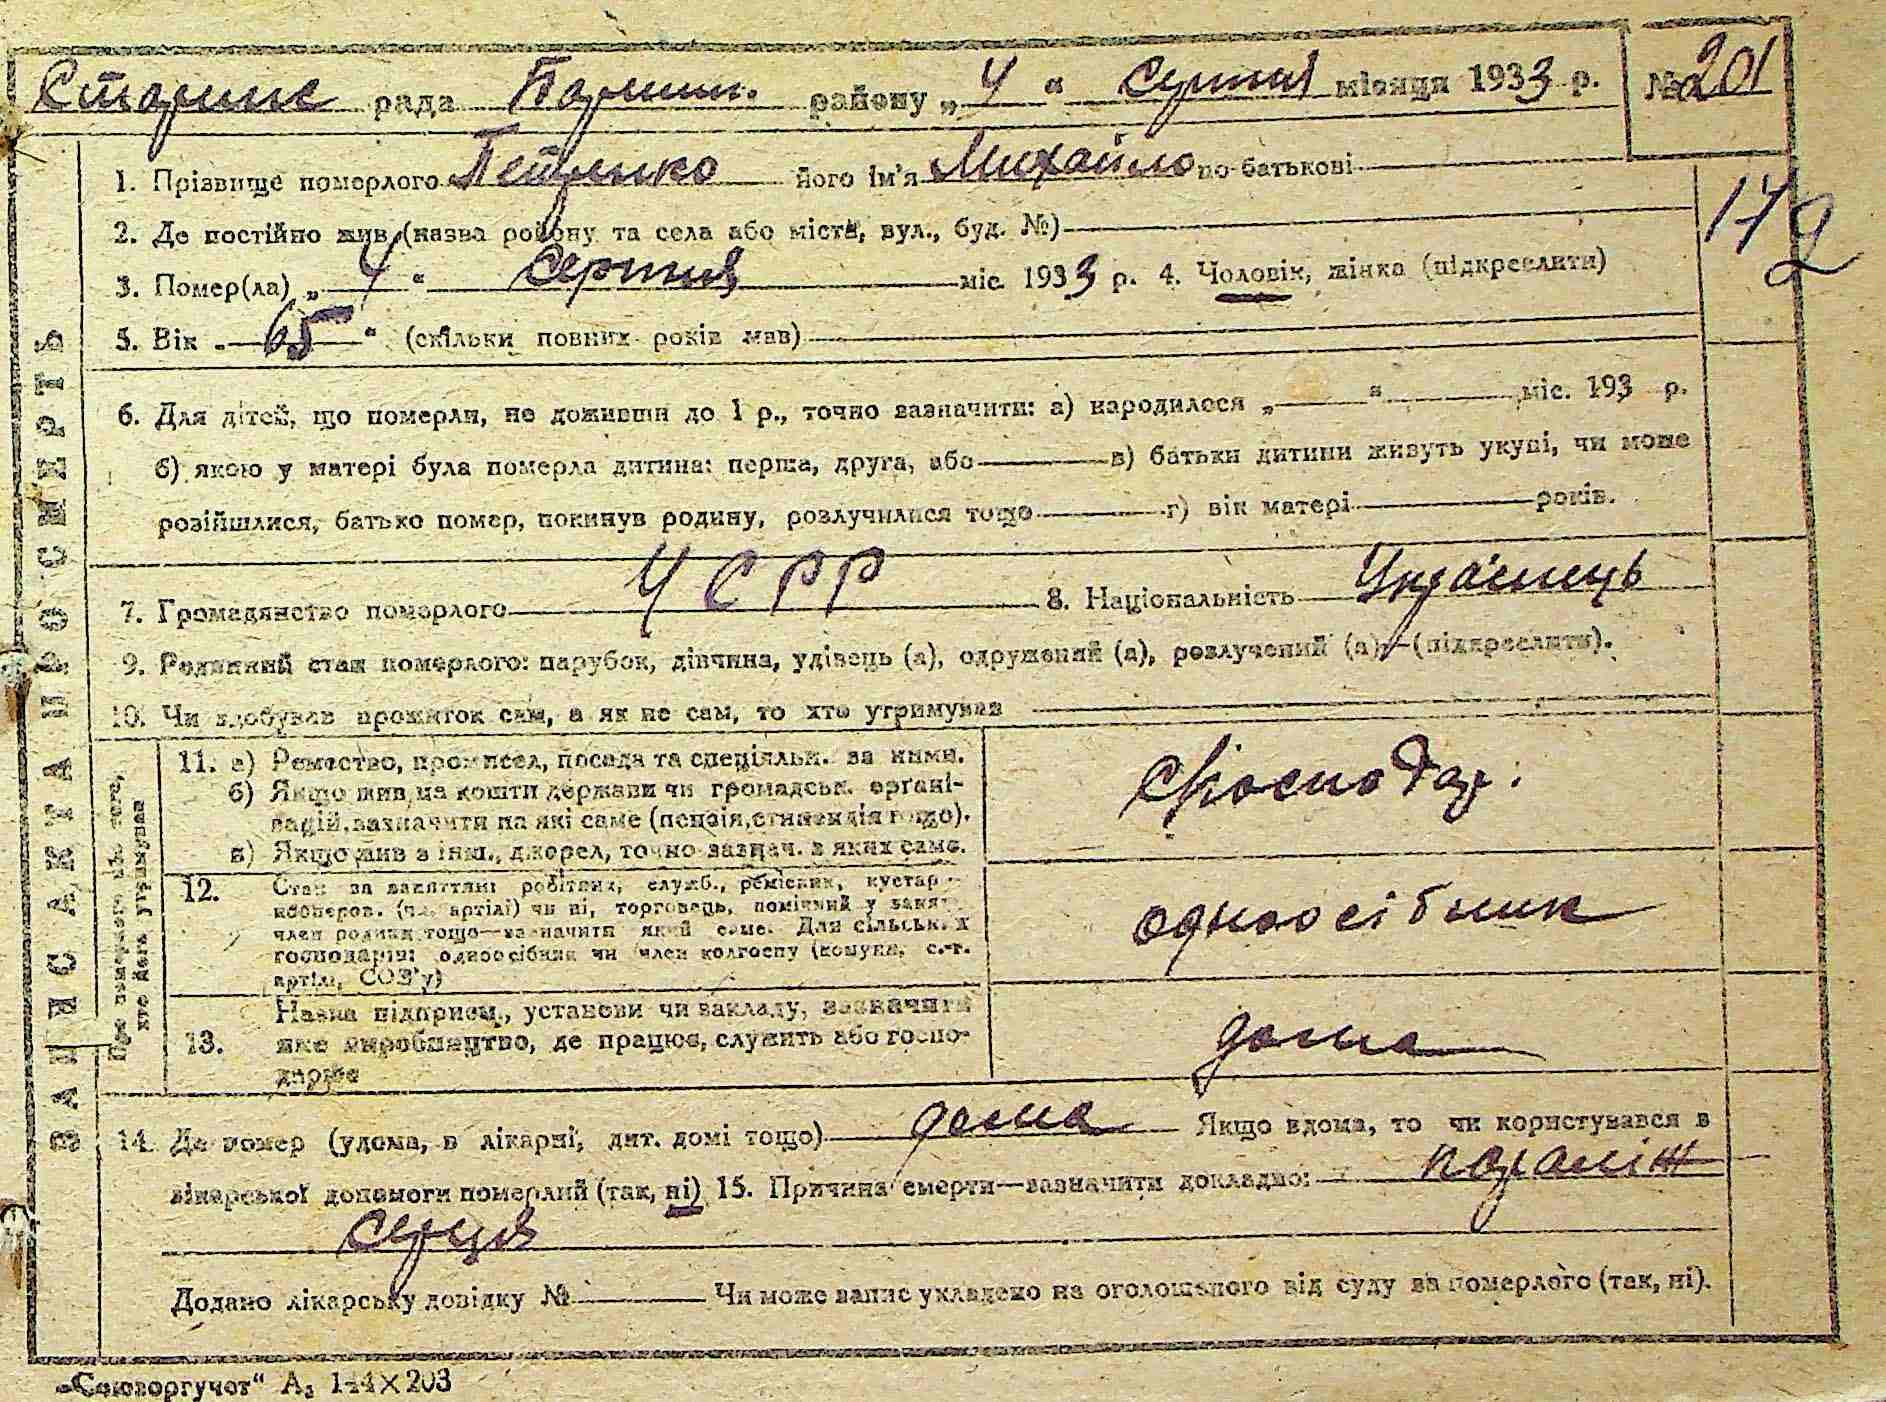 Старинс рада Баришп. району „4“ Серпня місяця 1933 р. № 201
1. Прізвище померлого Петренко його ім'я Михайло по-батькові
172
2. Де постійно жив (назва району та села або міста, вул., буд. №)
3. Помер(ла) „4“ Серпня міс. 1933 р. 4. Чоловік, жінка (підкреслити)
5. Вік „65“ (скільки повних років мав)
6. Для дітей, що померли, не доживши до 1 р., точно зазначити: а) народилося „ “ міс. 193 р.
б) якою у матері була померла дитина: перша, друга, або в) батьки дитини живуть укупі, чи може
розійшлися, батько помер, покинув родину, розлучилися тощо г) вік матері років.
7. Громадянство померлого УСРР 8. Національність Українець
9. Родинний стан померлого: парубок, дівчина, удівець (а), одружений (а), розлучений (а),—(підкреслити).
10. Чи здобував прожиток сам, а як не сам, то хто утримував
ЗАПИС АКТА ПРО СМЕРТЬ
Про померлого або того, хто його утримував
11. а) Ремество, промисел, посада та спеціяльн. за ними.
б) Якщо жив на кошти держави чи громадськ. органі-
зацій, зазначити на які саме (пенсія, стипендія тощо).
в) Якщо жив з інш., джерел, точно зазнач. з яких саме.
с/господар.
12. Стан за заняттям: робітник, служб., ремісник, кустар
кооперов. (чл. артілі) чи ні, торговець, помічний у занят.
член родини тощо—зазначити який саме. Для сільських
господарів: одноосібник чи член колгоспу (комуни, с.-г.
артілі, СОЗ'у)
одноосібник
13. Назва підприєм., установи чи закладу, зазначити
яке виробництво, де працює, служить або госпо-
дарює
дома
14. Де помер (удома, в лікарні, дит. домі тощо) дома Якщо вдома, то чи користувався з
лікарської допомоги померлий (так, ні) 15. Причина смерти—зазначити докладно: параліж
серця
Додано лікарську довідку № Чи може запис укладено на оголошеного від суду за померлого (так, ні).
„Союзоргучот“ А₅ 144×203